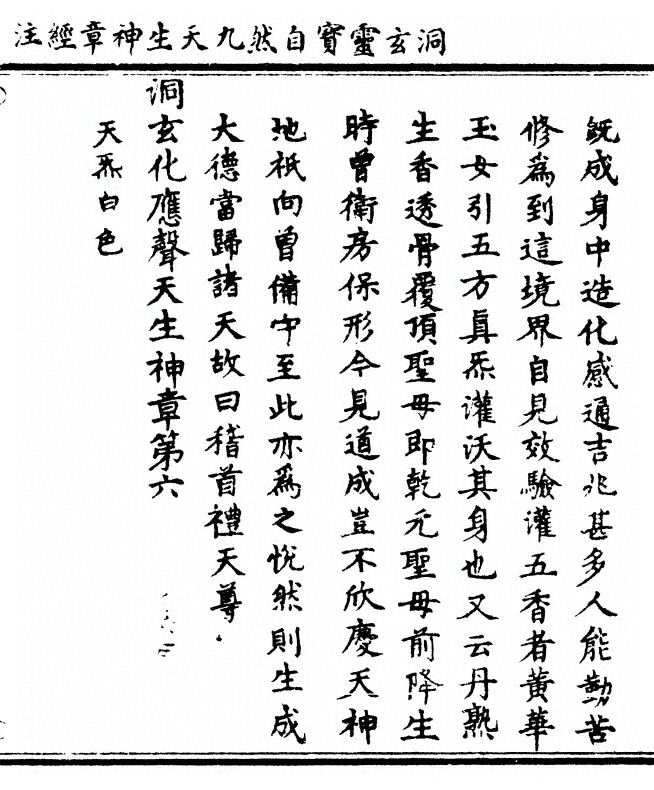 洞玄靈寶自然九天生神章經注
既成身中造化感通吉兆甚多人能勤苦
修為到這境界自見效驗灌五香者黃華
玉女引五方真炁灌沃其身也又云丹熟
生香透骨覆頂聖母即乾元聖母前降生
時曾衛房保形今見道成豈不欣慶天神
地祇向曾備守至此亦為之悅然則生成
大德當歸諸天故曰稽首禮天尊
洞玄化應聲天生神章第六
天炁白色